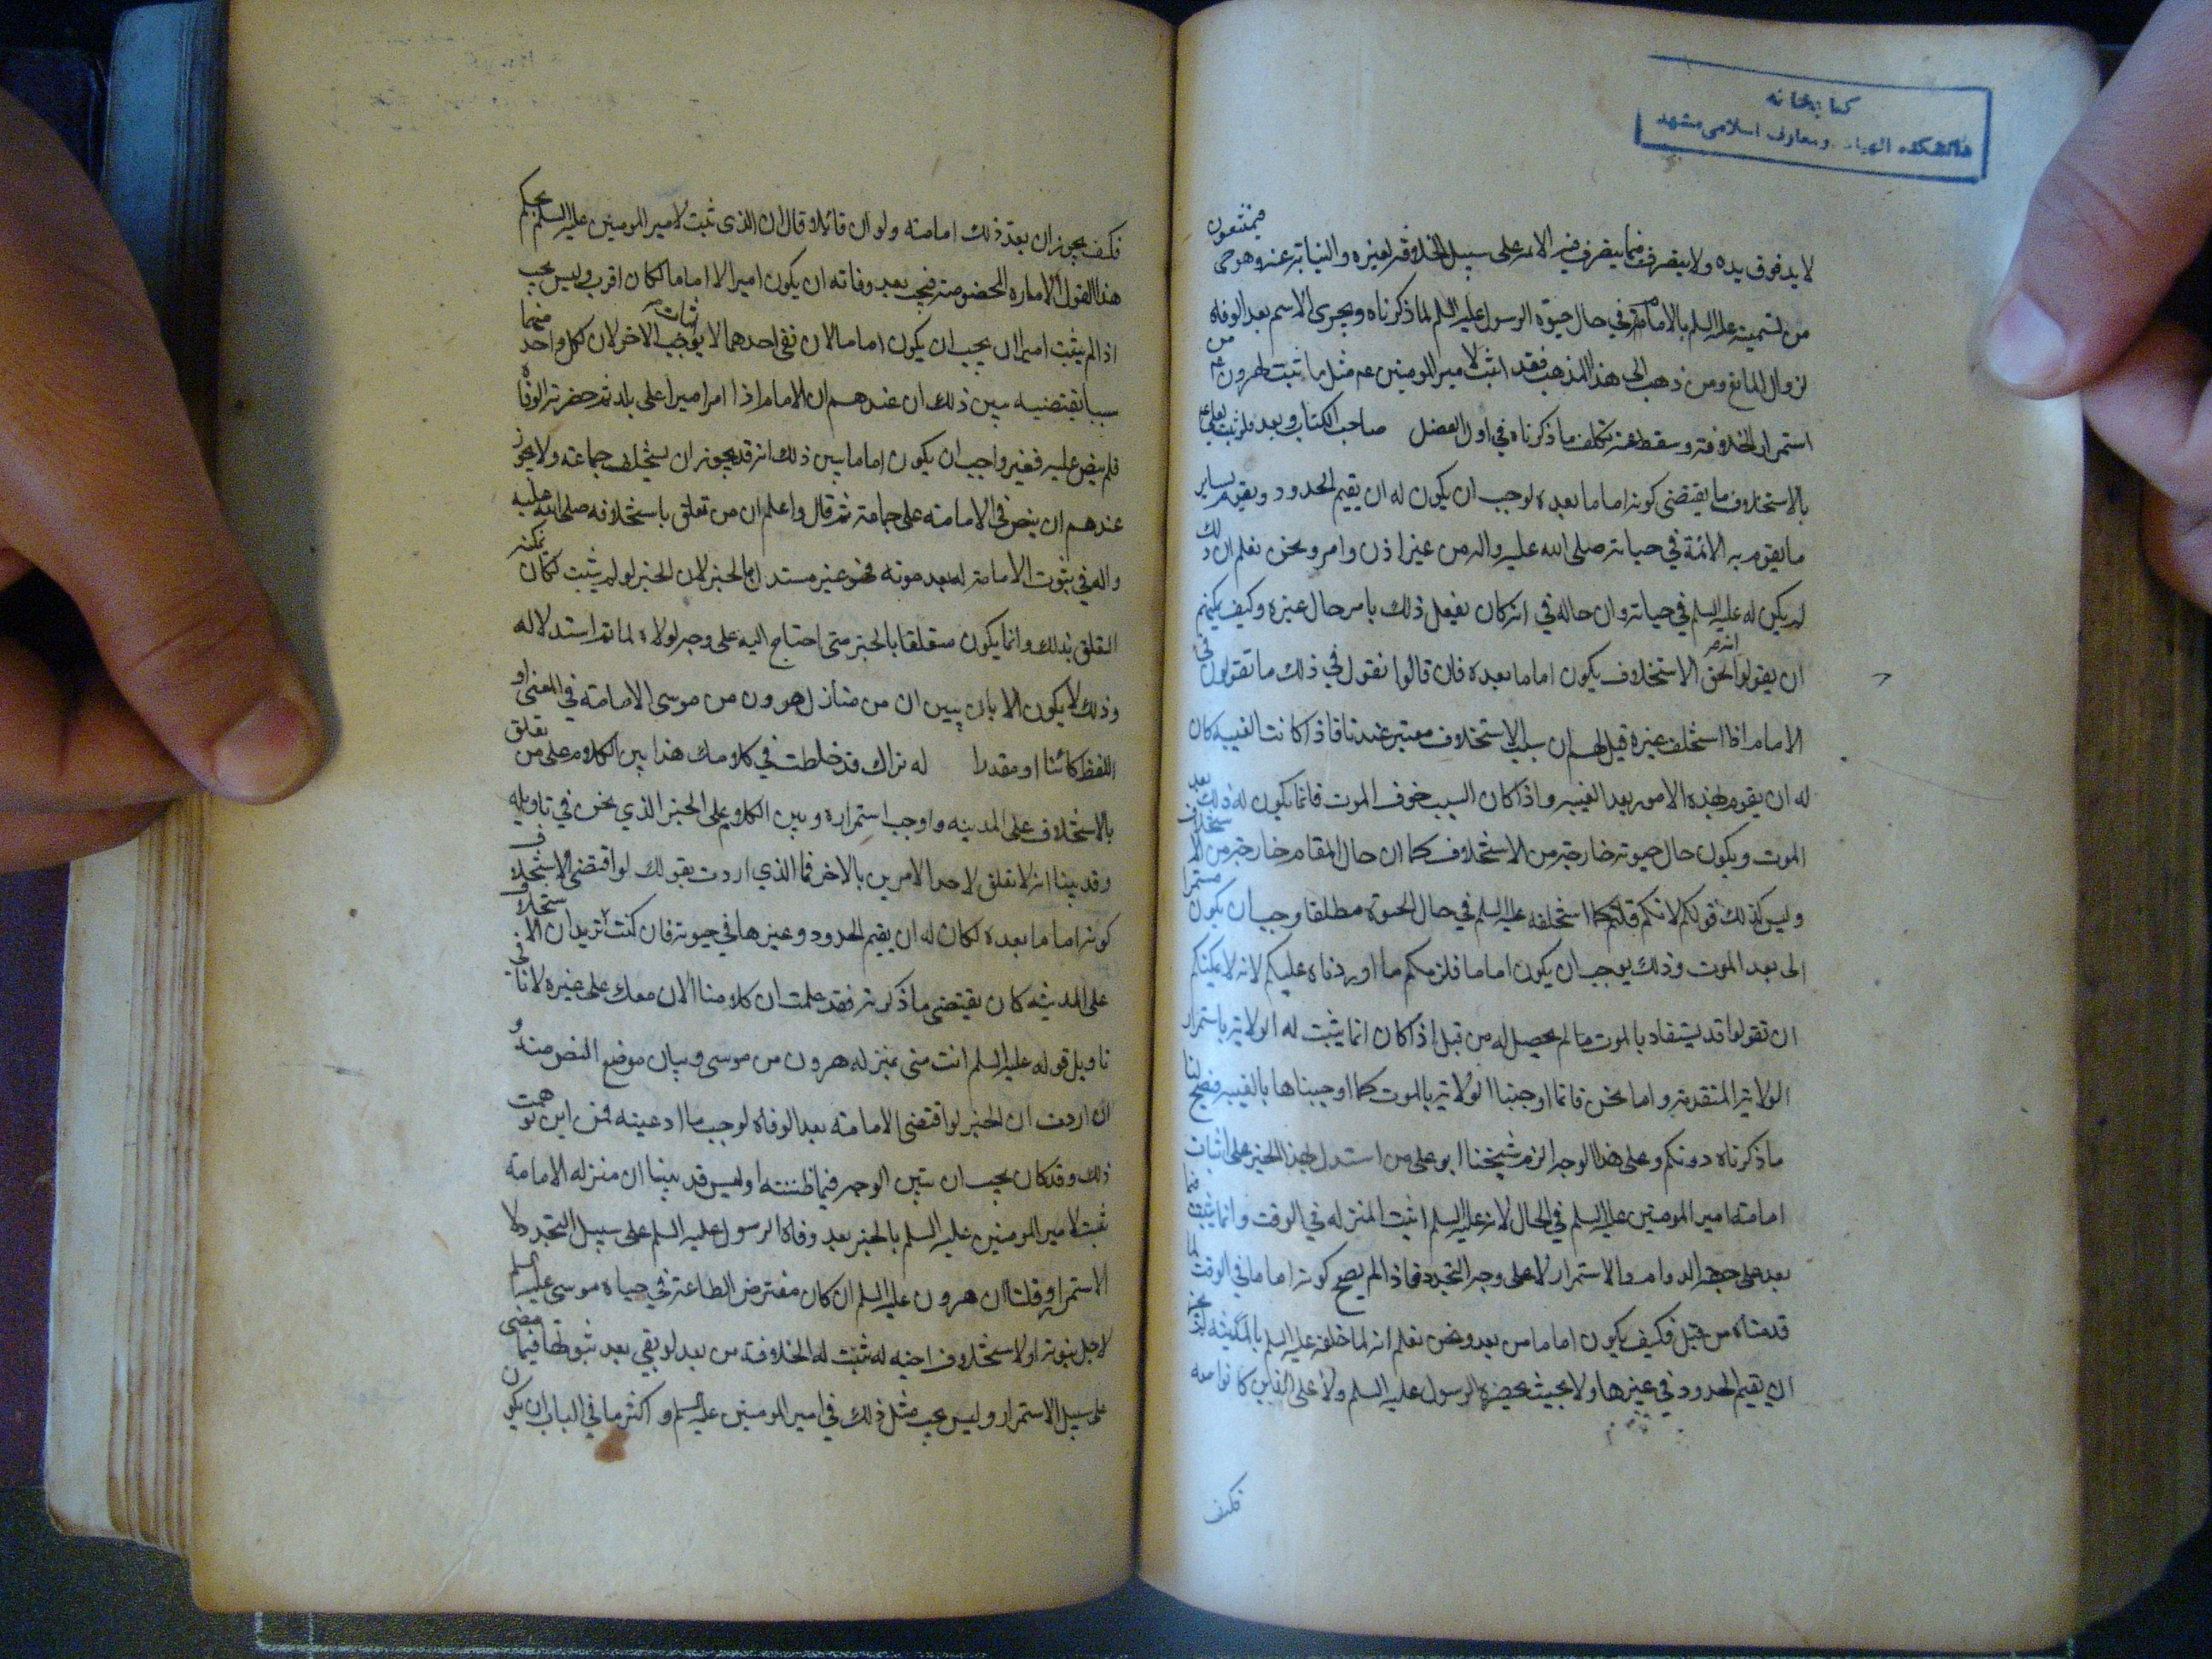 كتابخانه
دانشكده الهيات ومعارف اسلامى مشهد
لا يد فوق يده ولا يتصرف فيما يتصرف فيه الامر على سبيل الخلافة لغيره والنيابة عنه وهو حى فيمتنعون
من تسميته عليه السلم بالامامة في حال حيوة الرسول عليه السلم لما ذكرناه ويجرى الاسم بعد الوفاه
لزوال المانع ومن ذهب الى هذا المذهب فقد اثبت لامير المومنين عم مثل ما ثبت لهرون من
استمرار الخلافة وسقط عنه تكلف ما ذكرناه في اول الفصل صاحب الكتاب وبعد فلو ثبت
بالاستخلاف ما يقتضى كونه اماما بعده لوجب ان يكون له ان يقيم الحدود ويقوم بساير
ما يقوم به الائمة في حياته صلى الله عليه واله من غير اذن وامر ونحن نعلم ان ذلك
لم يكن له عليه السلم في حياته وان حاله في انه كان يفعل ذلك بامر حال غيره وكيف يمكنهم
ان يقولوا بحق الاستخلاف يكون اماما بعده فان قالوا نقول في ذلك ما تقولون في
الامام اذا استخلف غيره قيل لهم ان سبب الاستخلاف معتبر عندنا فاذا كانت الغيبه كان
له ان يقوم بهذه الامور بعد الغيبه واذا كان السبب خوف الموت فانما يكون له ذلك بعد
الموت ويكون حال حيوته خارجة من الاستخلاف كما ان حال المقام خارجة من الاستخلاف
وليس كذلك قولكم لانكم قلتم كما استخلفه عليه السلم في حال الحيوة مطلقا وجب ان يكون مستمرا
الى بعد الموت وذلك يوجب ان يكون اماما فلزمكم ما اوردناه عليكم لانه لا يمكنكم
ان تقولوا قد يستفاد بالموت ما لم يحصل له من قبل اذ كان انما يثبت له الولاية باستمرار
الولاية المتقدمة واما نحن فانما اوجبنا الولاية بالموت كما اوجبناها بالغيبه فصح لنا
ما ذكرناه دونكم وعلى هذا الوجه الزم شيخنا ابو على من استدل بهذا الخبر على اثبات
امامته امير المومنين عليه السلم في الحال لانه عليه السلم اثبت المنزله في الوقت وانما يثبت فيما
بعد على جهة الدوام والاستمرار لا على وجه التجدد فاذا لم يصح كونه اماما في الوقت لما
قدمناه من قبل فكيف يكون اماما من بعد ونحن نعلم انه لما خلفه عليه السلم بالمدينه لم يجز
ان يقيم الحدود في غيرها ولا بحيث بحضرة الرسول عليه السلم ولا على الذين كانوا معه
فكيف
فكيف يجوز ان يعد ذلك امامته ولو ان قائلا قال ان الذى ثبت لامير المومنين عليه السلم بحكم
هذا القول الاماره المخصوصة فيجب بعد وفاته ان يكون اميرا لا اماما لكان اقرب وليس يجب
اذا لم يثبت اميرا ان يجب ان يكون اماما لان نفى احدهما لا يوجب اثبات الاخر لان لكل واحد منهما
سببا يقتضيه يبين ذلك ان عندهم ان الامام اذا امر اميرا على بلد ثم حضرته الوفاة
فلم ينص عليه فغير واجب ان يكون اماما يبين ذلك انه قد يجوز ان يستخلف جماعته ولا يجوز
عندهم ان ينص في الامامته على جماعة ثم قال واعلم ان من تعلق باستخلافه صلى الله عليه
واله في ثبوت الامامة له بعد موته فهو غير مستدل بالخبر لان الخبر لو لم يثبت لكان يمكنه
التعلق بذلك وانما يكون متعلقا بالخبر متى احتاج اليه على وجه لولاه لما تم استدلاله
وذلك لا يكون الا بان يبين ان من منازل هرون من موسى الامامته في المعنى او
اللفظ كائنا او مقدرا له نراك قد خلطت في كلامك هذا بين الكلام على من تعلق
بالاستخلاف على المدينه واوجب استمراره وبين الكلام على الخبر الذي نحن في تاويله
وقد بينا انه لا تعلق لاحد الامرين بالاخر فما الذي اردت بقولك لو اقتضى الاستخلاف
كونه اماما بعده لكان له ان يقيم الحدود وغيرها في حيوته فان كنت تريد ان الاستخلاف
على المدينه كان يقتضى ما ذكرته فقد علمت ان كلامنا الان معك على غيره لانا في
تاويل قوله عليه السلم انت منى بمنزله هرون من موسى وبيان موضع النص منه و
ان اردت ان الخبر لو اقتضى الامامته بعد الوفاه لوجب ما ادعيته فمن اين توهمت
ذلك وقد كان يجب ان تبين الوجه فيما ظننته او ليس قد بينا ان منزله الامامته
تثبت لامير المومنين عليه السلم بالخبر بعد وفاه الرسول عليه السلم على سبيل التجدد لا
الاستمرار وقلنا ان هرون عليه السلم ان كان مفترض الطاعة في حياه موسى عليه السلم
لاجل نبوته او لاستخلاف اخيه له ثبت له الخلافة من بعد لو بقى بعد ثبوتها فيما مضى
على سبيل الاستمرار وليس يجب مثل ذلك في امير المومنين عليه السلم و اكثر ما في الباب ان يكون